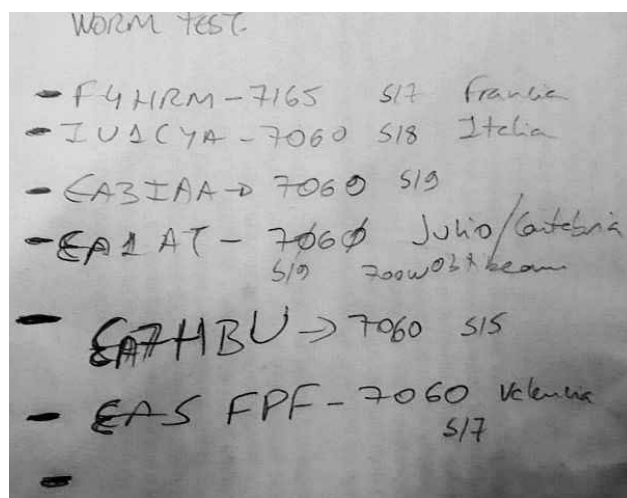 WORM TEST.
- F4HRM - 7165 S/7 Francia
- IU1CYA - 7060 S/8 Italia
- EA3IAA → 7060 S/9
- EA1AT - 7060 Julio/Cantabria
S/9 700W beam
- EA7HBU → 7060 S/5
- EA5 FPF - 7060 Valencia
S/7
-